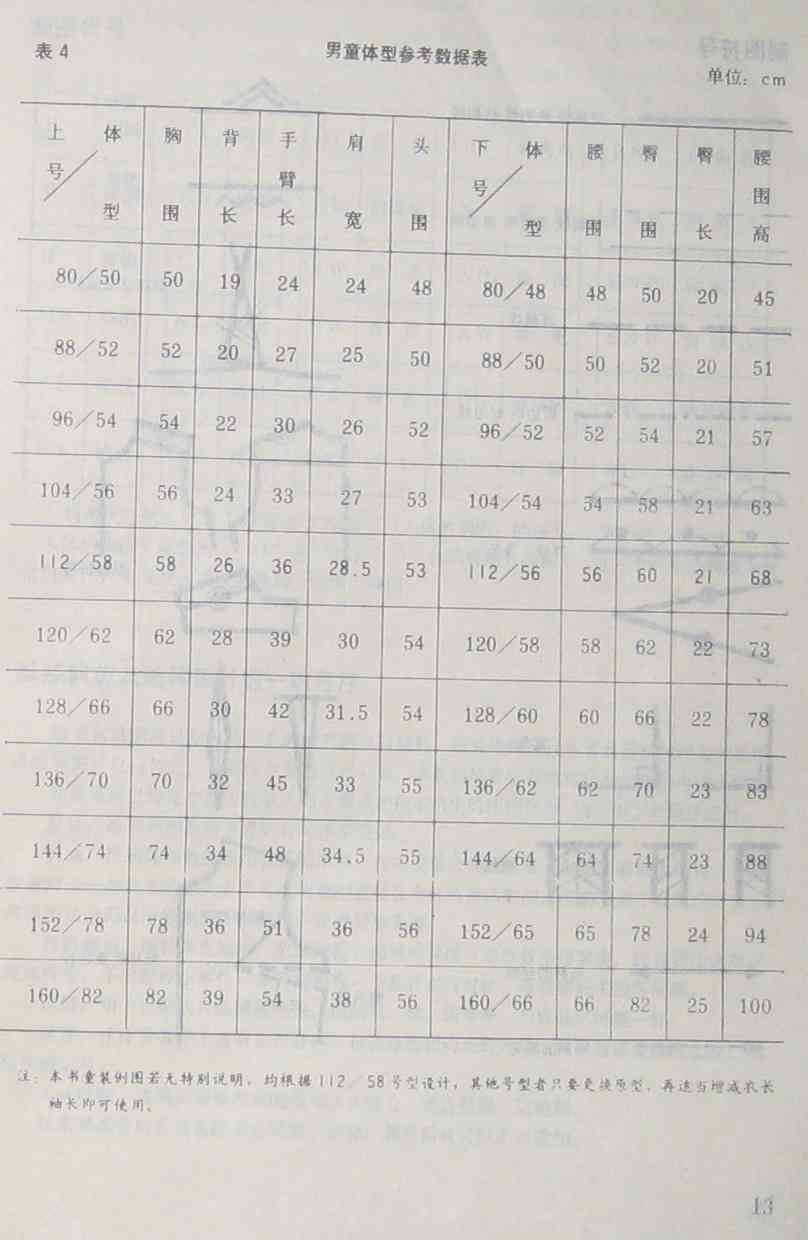 表 4 男童体型参考数据表
单位：cm
上号/体型 胸围 背长 手臂长 肩宽 头围 下号/体型 腰围 臀围 臀长 腰围高
80/50 50 19 24 24 48 80/48 48 50 20 45
88/52 52 20 27 25 50 88/50 50 52 20 51
96/54 54 22 30 26 52 96/52 52 54 21 57
104/56 56 24 33 27 53 104/54 54 58 21 63
112/58 58 26 36 28.5 53 112/56 56 60 21 68
120/62 62 28 39 30 54 120/58 58 62 22 73
128/66 66 30 42 31.5 54 128/60 60 66 22 78
136/70 70 32 45 33 55 136/62 62 70 23 83
144/74 74 34 48 34.5 55 144/64 64 74 23 88
152/78 78 36 51 36 56 152/65 65 78 24 94
160/82 82 39 54 38 56 160/66 66 82 25 100
注：本书童装例图若无特别说明，均根据112/58号型设计，其他号型者只要更换原型，再适当增减衣长
袖长即可使用。
13